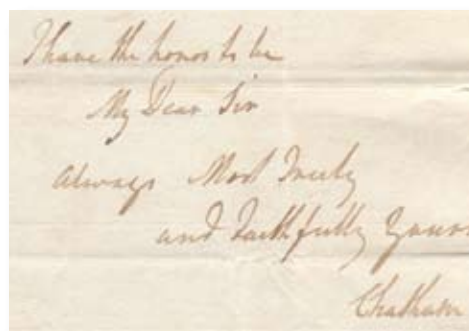 I have the honor to be
My Dear Sir
always Most Truly
and Faithfully Yours
Chatham